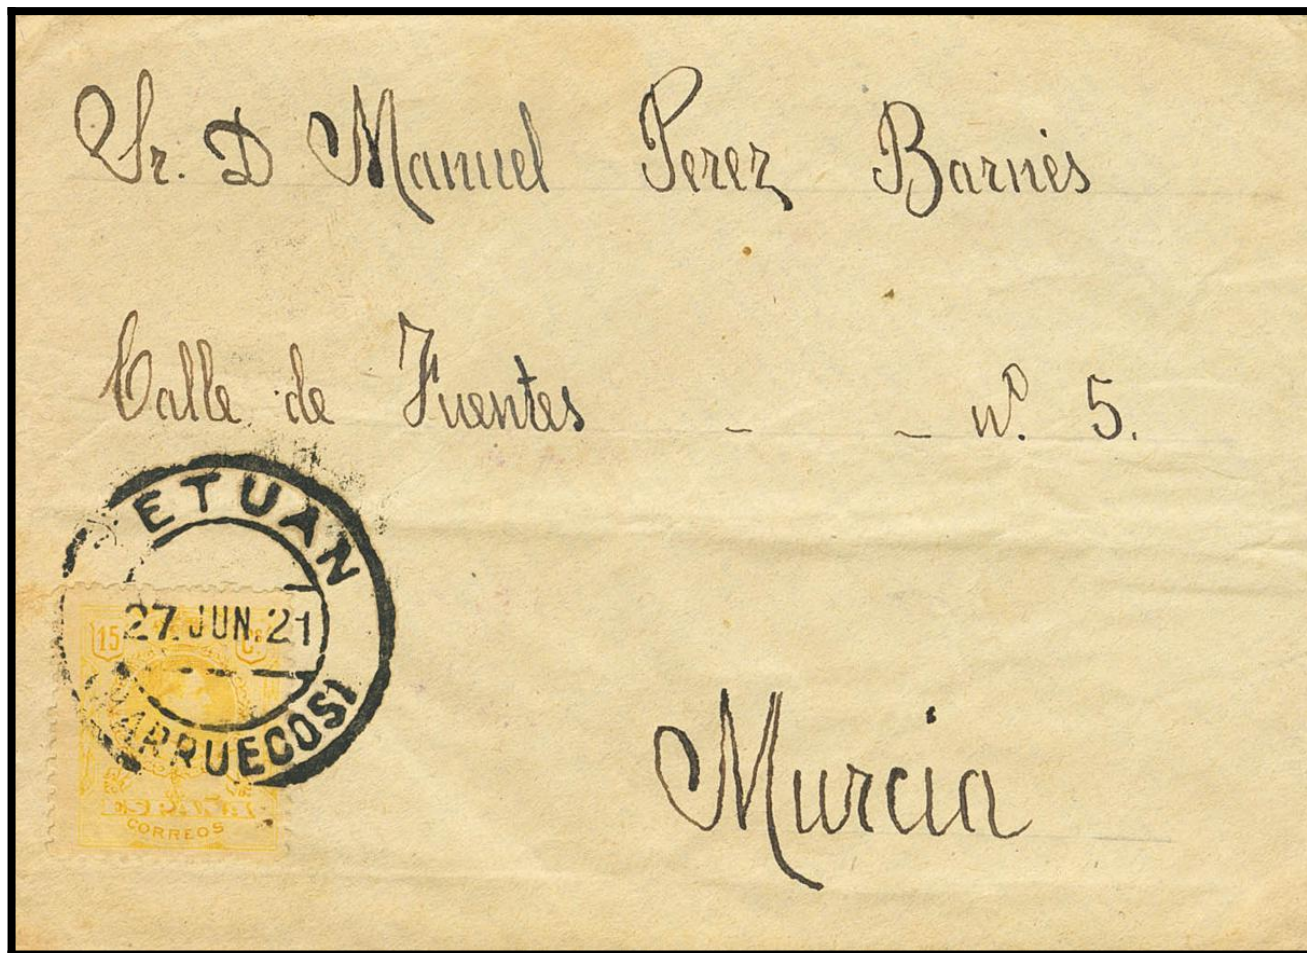 Sr. D Manuel Perez Barnés
Calle de Fuentes - - nº. 5.
TETUAN
27 JUN. 21
(MARRUECOS)
15 Cs
CORREOS
Murcia